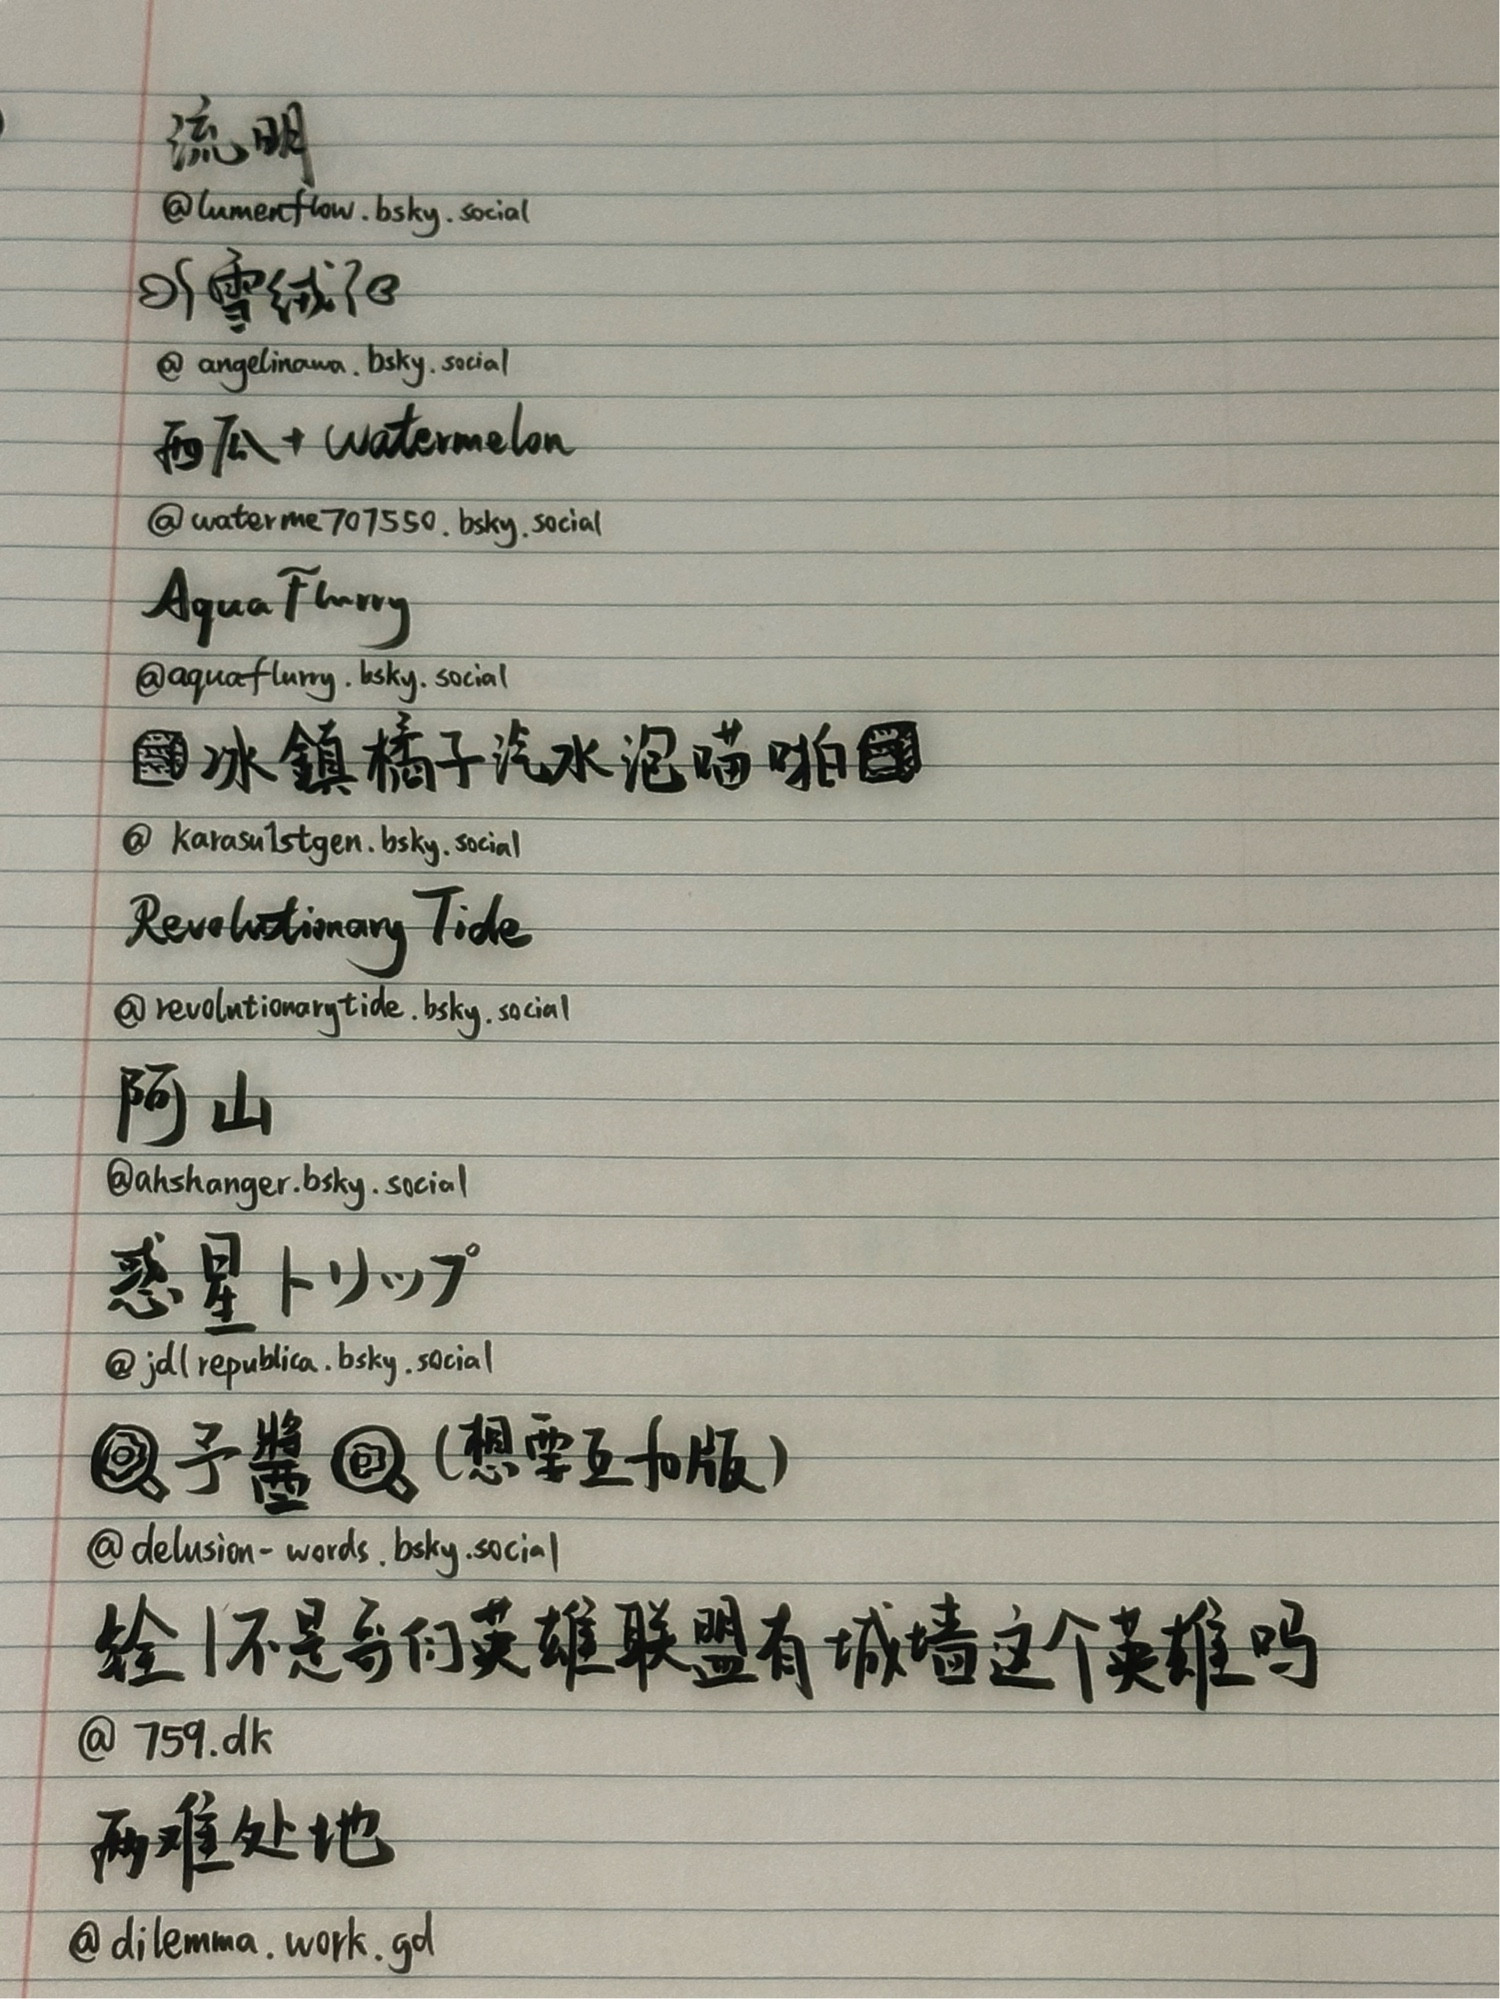 流明
@lumenflow.bsky.social
雪绒
@angelinawa.bsky.social
西瓜+watermelon
@waterme707550.bsky.social
Aqua Flurry
@aquaflurry.bsky.social
冰鎮橘子汽水泡喵啪
@karasu1stgen.bsky.social
Revolutionary Tide
@revolutionarytide.bsky.social
阿山
@ahshanger.bsky.social
惑星トリップ
@jdlrepublica.bsky.social
予醬(想要互fo版)
@delusion-words.bsky.social
绘|不是哥们英雄联盟有城墙这个英雄吗
@759.dk
两难处地
@dilemma.work.gd